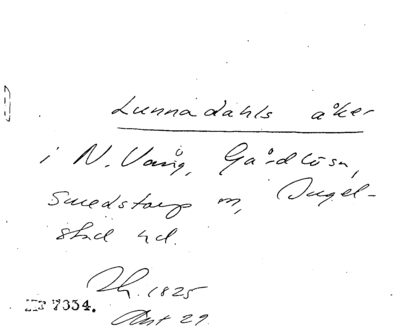 Lunnadahls åker
i N. Vång, Gårdlösa,
Smedstorp sn, Ingel-
stad hd.
1825
MF 7334.
29